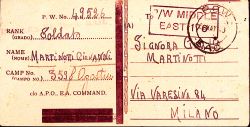 P. W. No. 49526
RANK
(GRADO) Soldato
NAME
(NOME) MARTINOTTI GIOVANNI
CAMP No.
(CAMPO No.) 3598
c/o A.P.O., E.A. COMMAND.
P/W MIDDLE
EAST
SIGNORA
MARTINOTTI
VIA VARESINI
MILANO